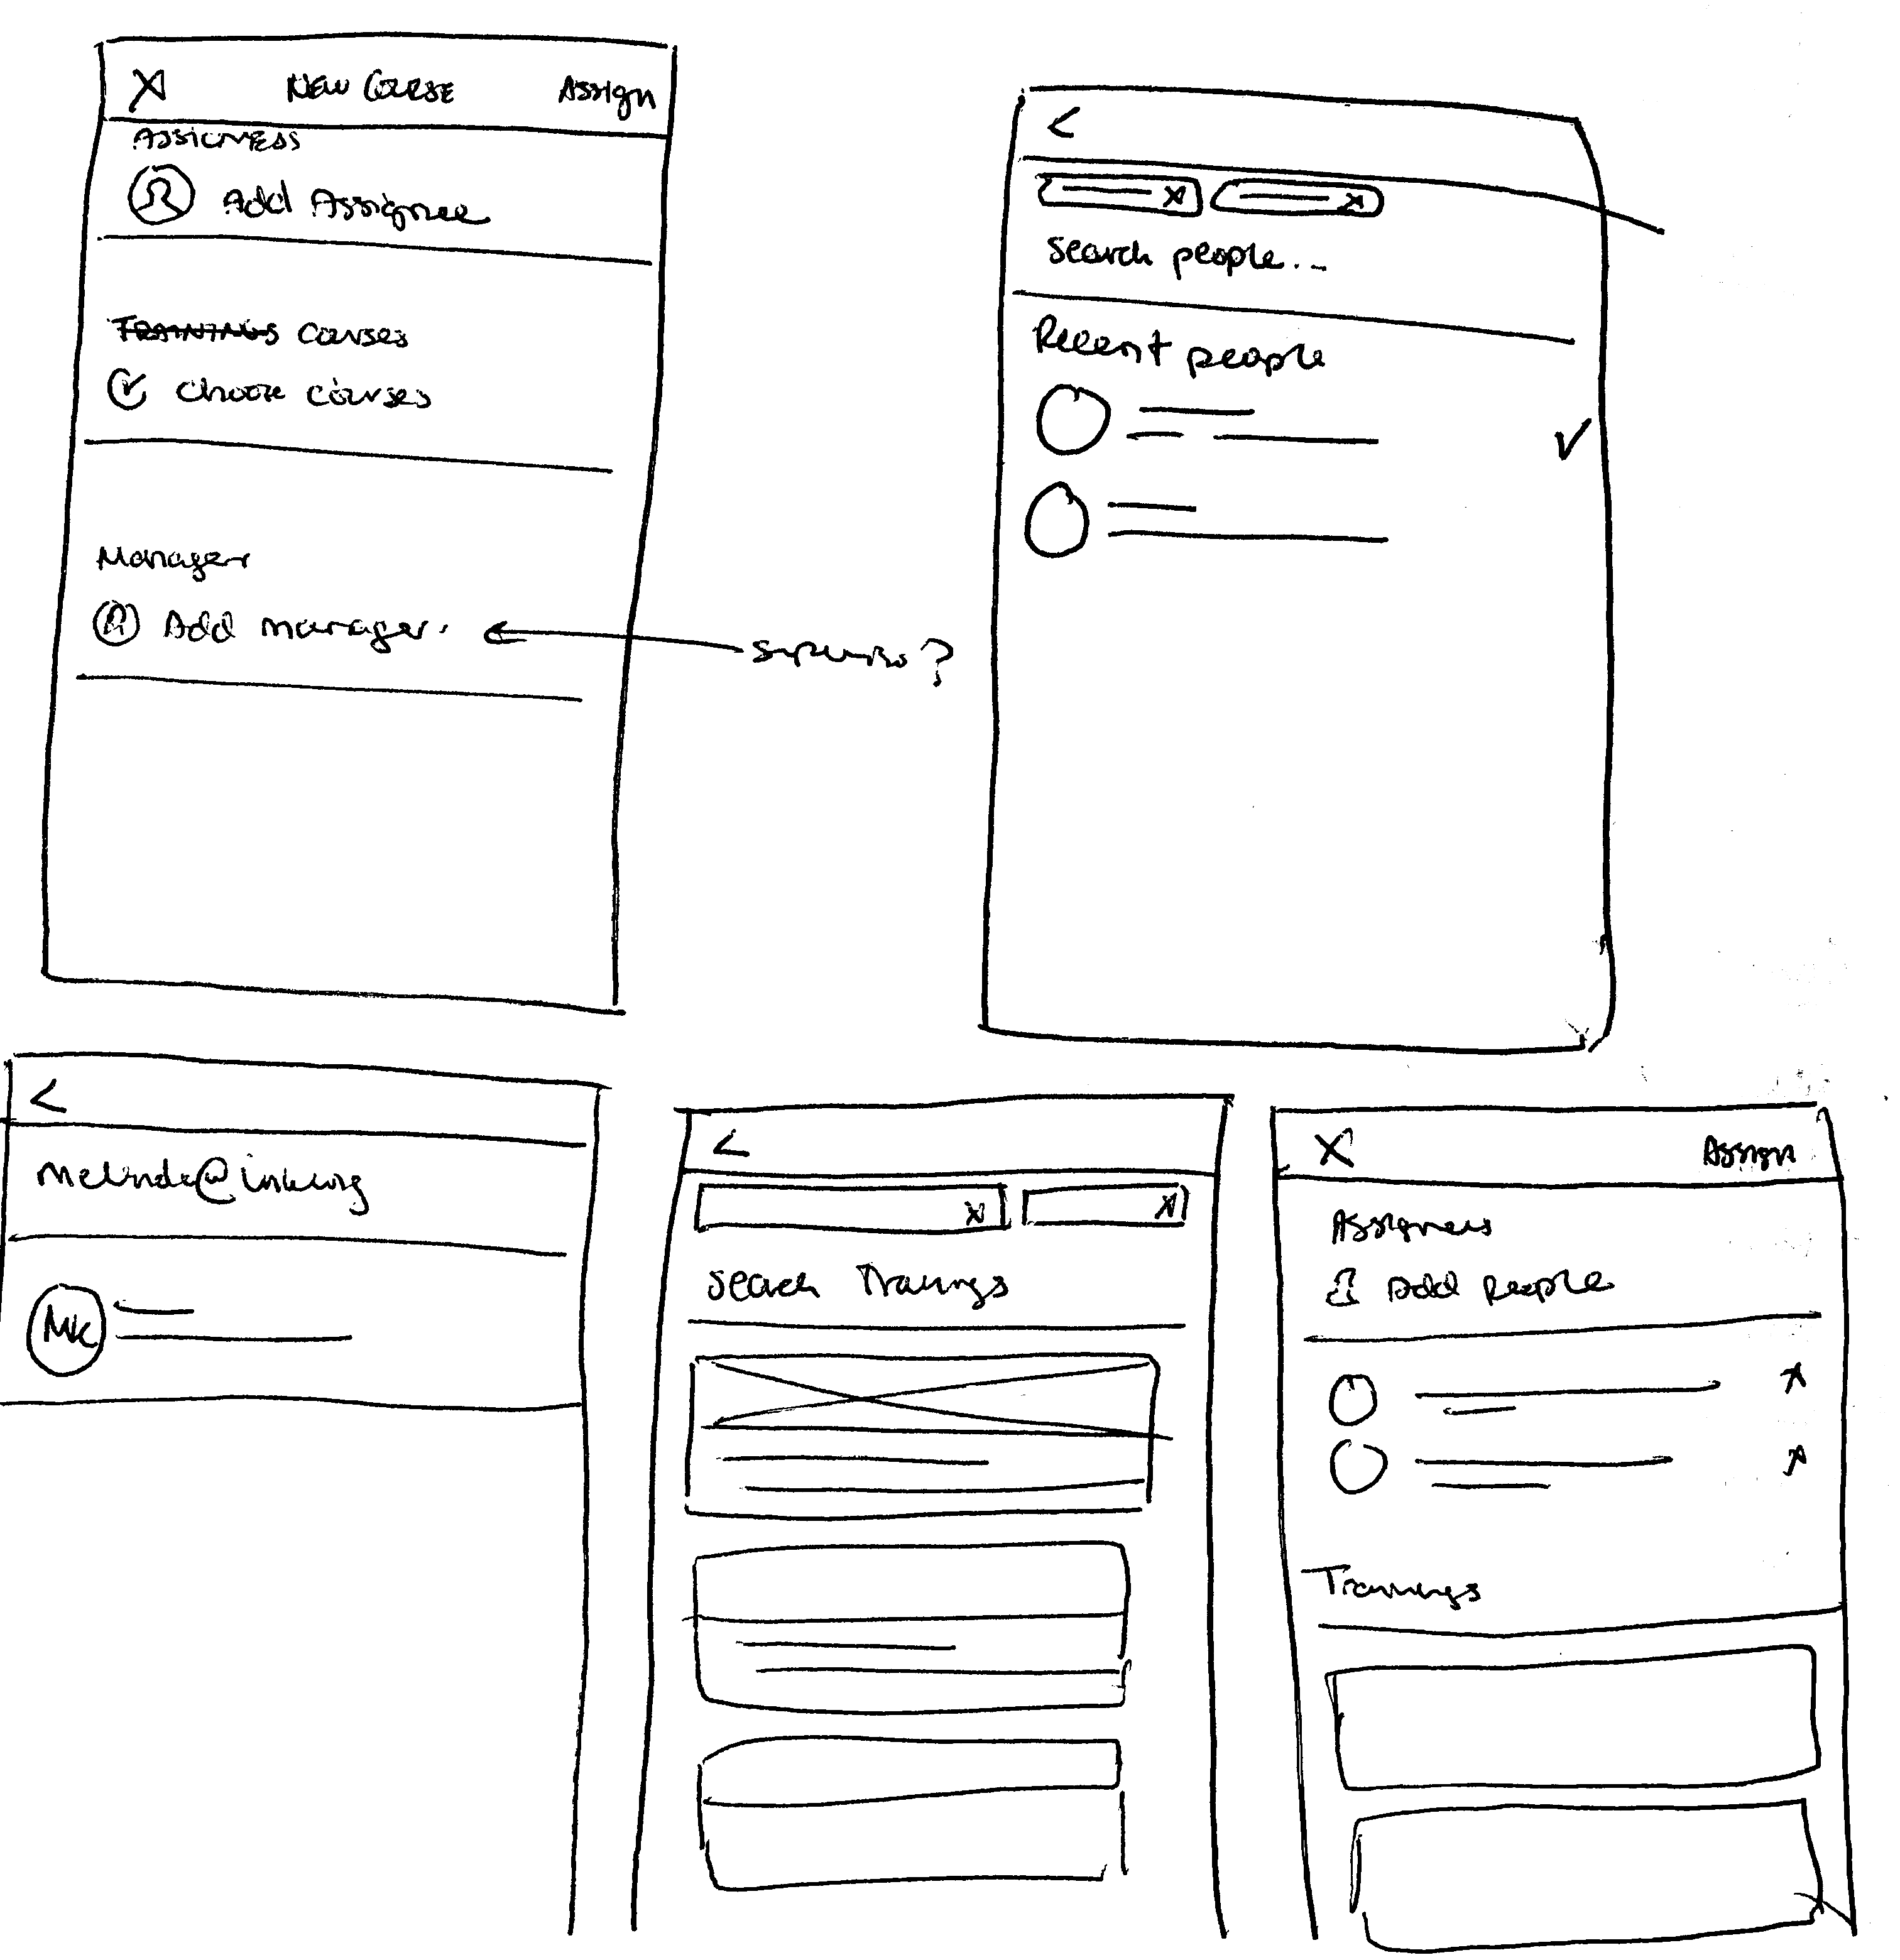 X NEW COURSE Assign
ASSIGNEES
Add Assignee
TRAININGS Courses
choose courses
Manager
Add manager.
<
x x
search people...
Recent people
<
MK
<
x x
search Trainings
X Assign
Assignees
Add People
x
x
Trainings